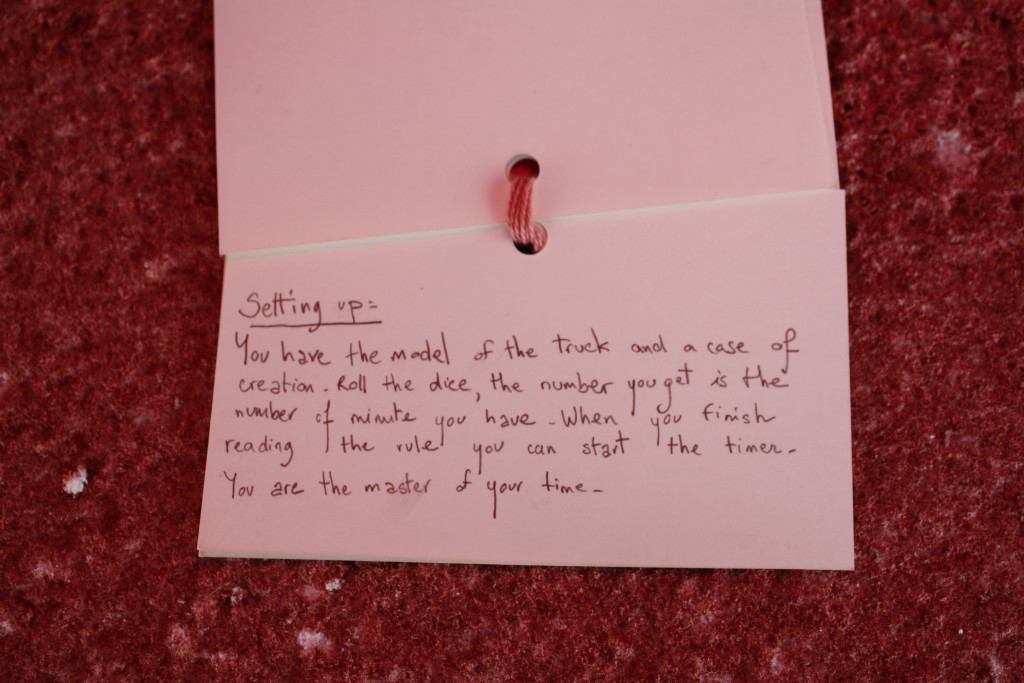 Setting up:
You have the model of the truck and a case of
creation. Roll the dice, the number you get is the
number of minute you have. When you finish
reading the rule you can start the timer.
You are the master of your time.